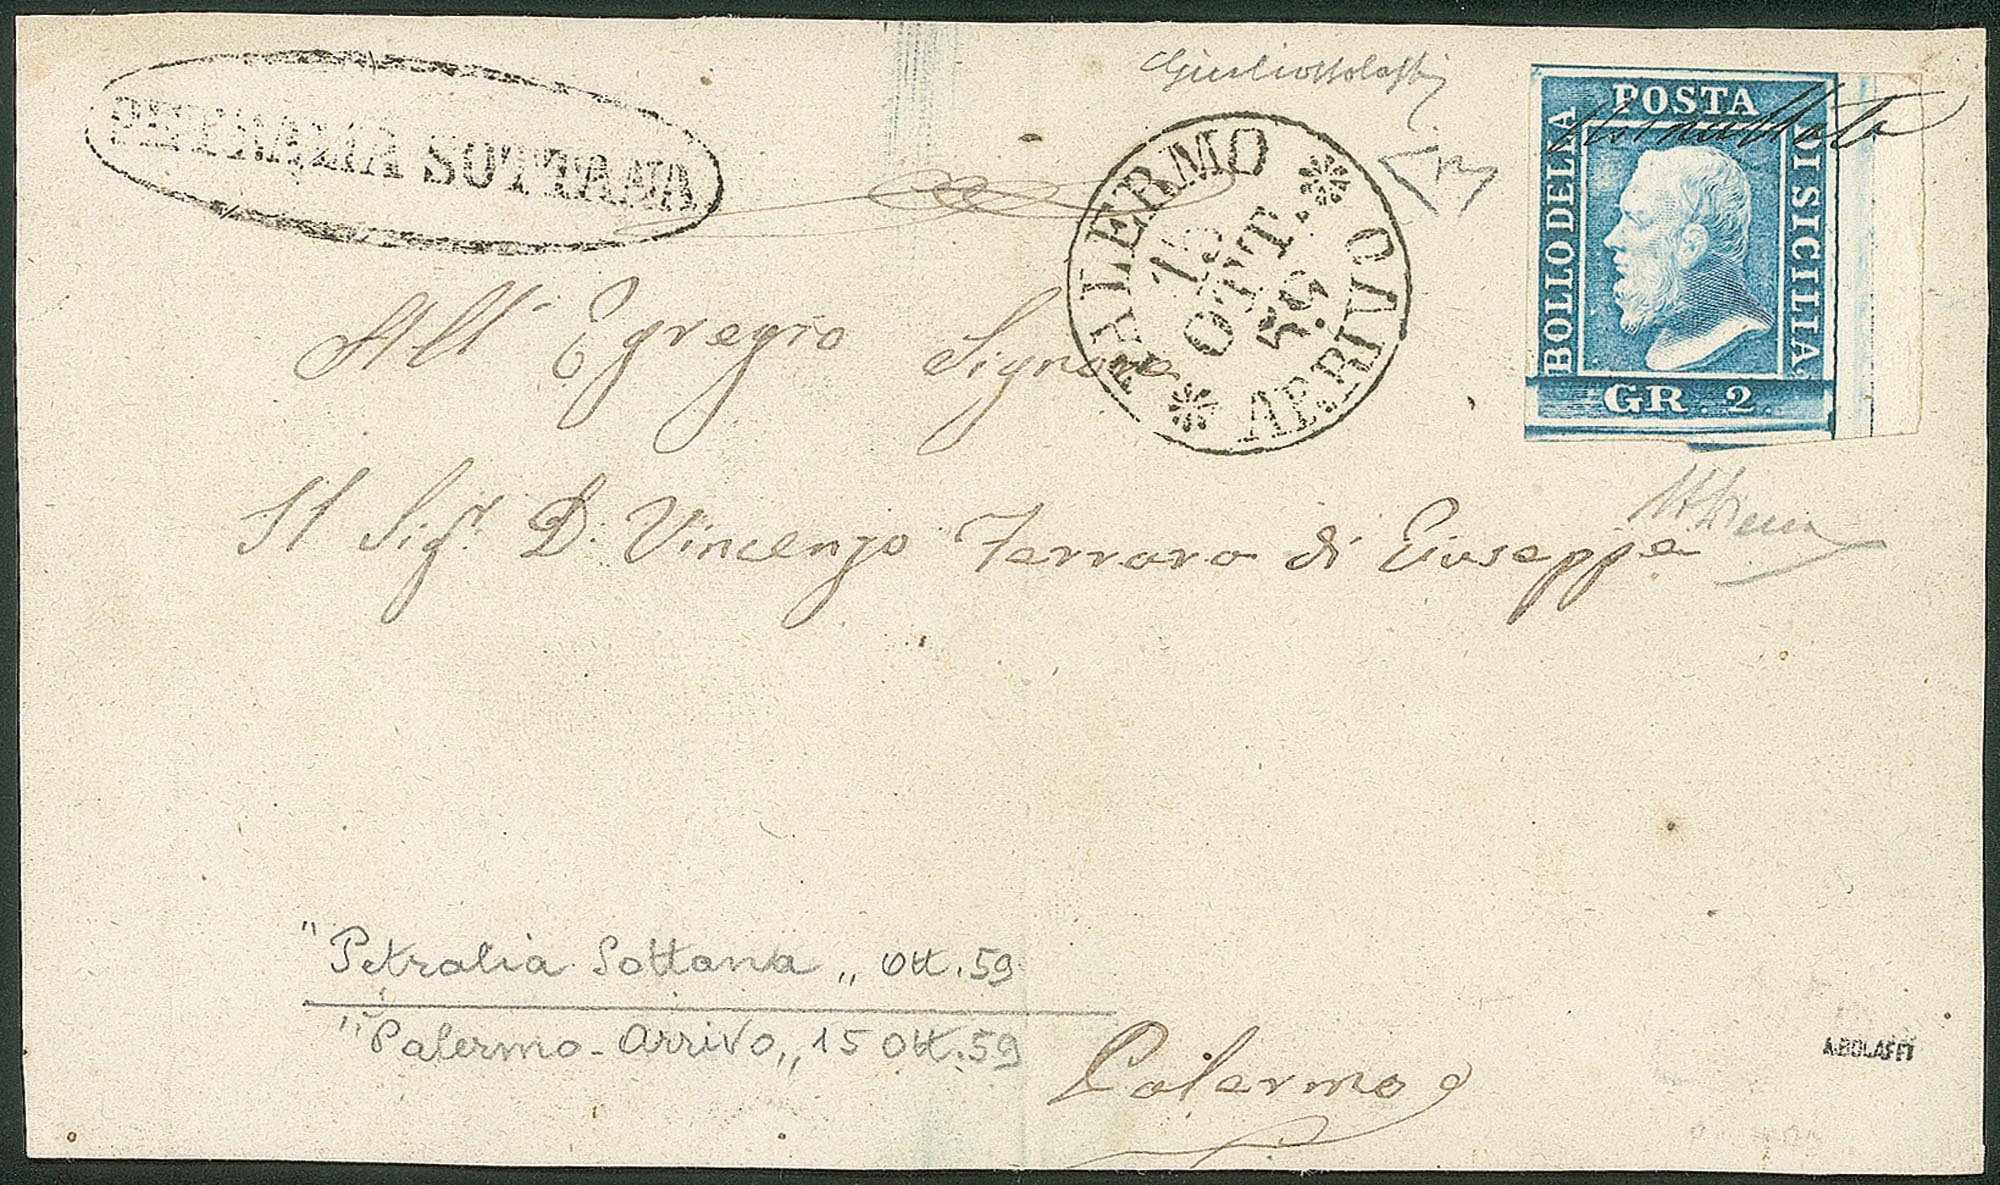 PETRALIA SOTTANA
PALERMO
15
OTT.
59
ARRIVO
POSTA
BOLLO DELLA
DI SICILIA
GR. 2.
Annullato
All' Egregio Signore
Il Sigr. D. Vincenzo Ferraro di Giuseppe
"Petralia Sottana„ Ott. 59
"Palermo-Arrivo„ 15 Ott. 59
Palermo
A.BOLAFFI